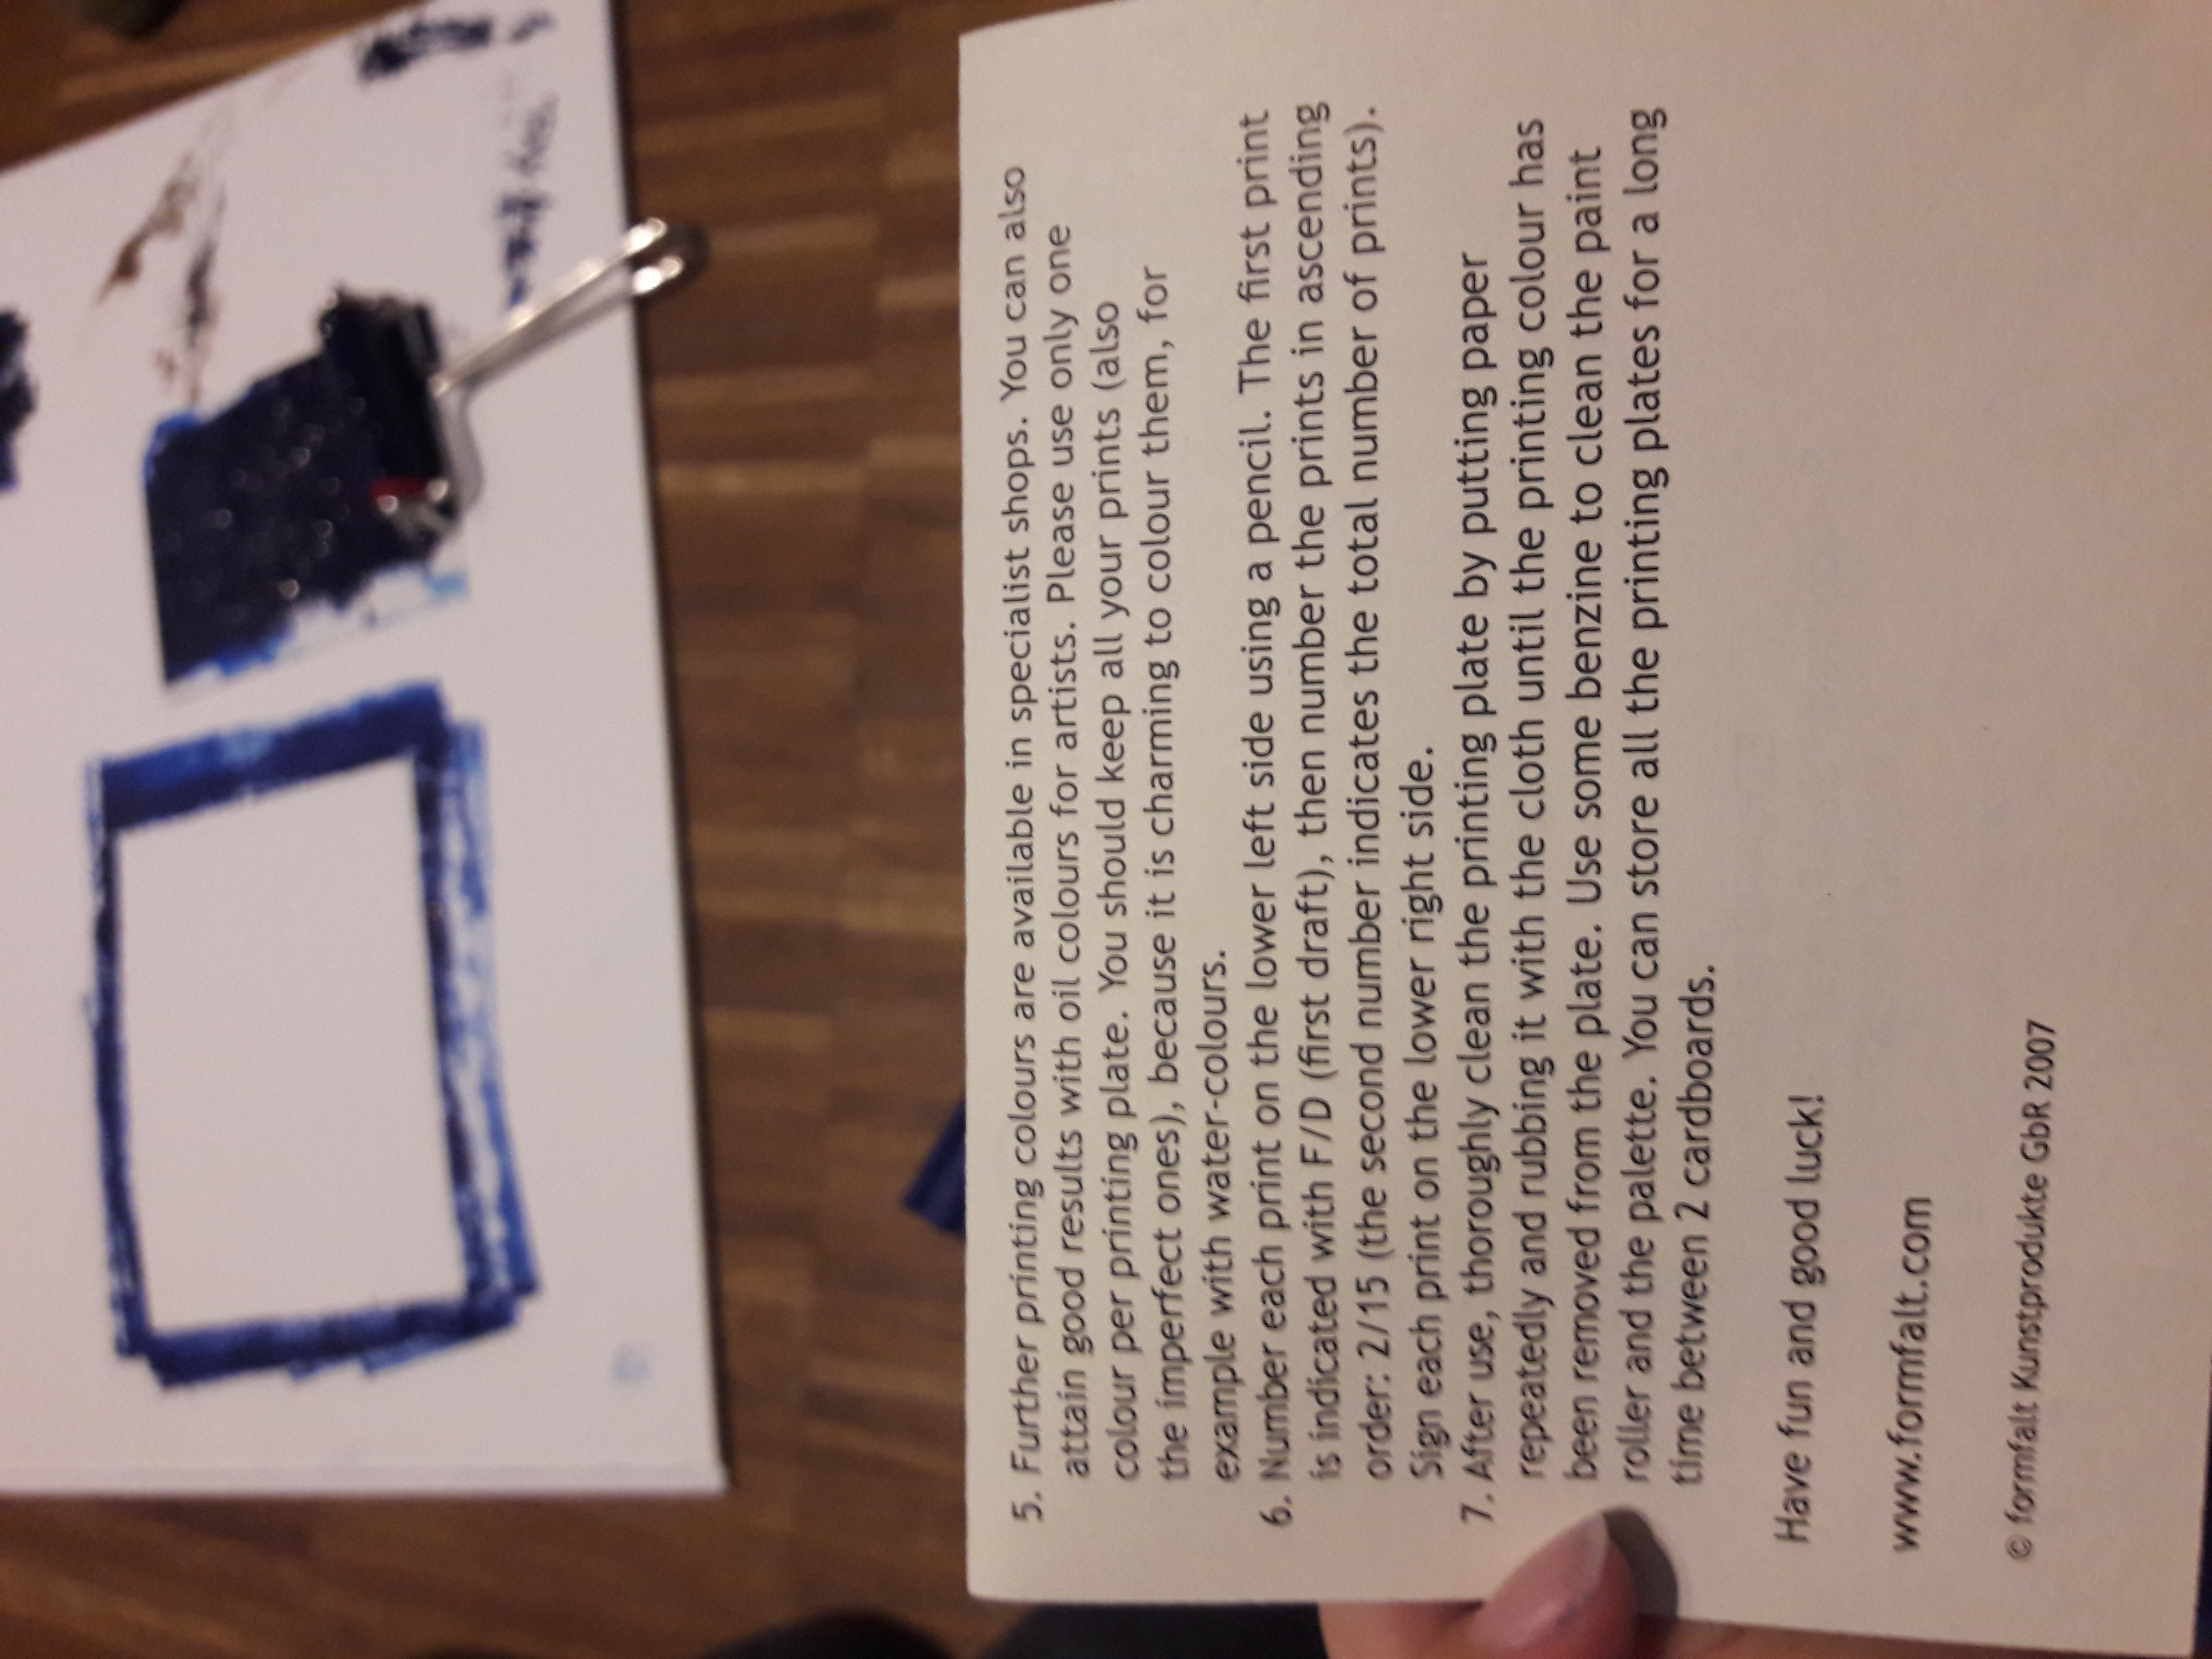 5. Further printing colours are available in specialist shops. You can also
attain good results with oil colours for artists. Please use only one
colour per printing plate. You should keep all your prints (also
the imperfect ones), because it is charming to colour them, for
example with water-colours.
6. Number each print on the lower left side using a pencil. The first print
is indicated with F/D (first draft), then number the prints in ascending
order: 2/15 (the second number indicates the total number of prints).
Sign each print on the lower right side.
7. After use, thoroughly clean the printing plate by putting paper
repeatedly and rubbing it with the cloth until the printing colour has
been removed from the plate. Use some benzine to clean the paint
roller and the palette. You can store all the printing plates for a long
time between 2 cardboards.
Have fun and good luck!
www.formfalt.com
© formfalt Kunstprodukte GbR 2007